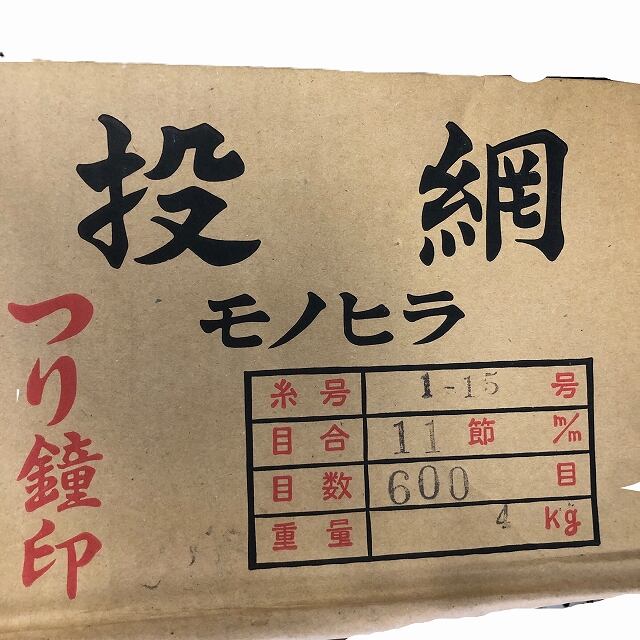 投網
モノヒラ
つり鐘印
糸号 1-15 号
目合 11 節 m/m
目数 600 目
重量 4 kg